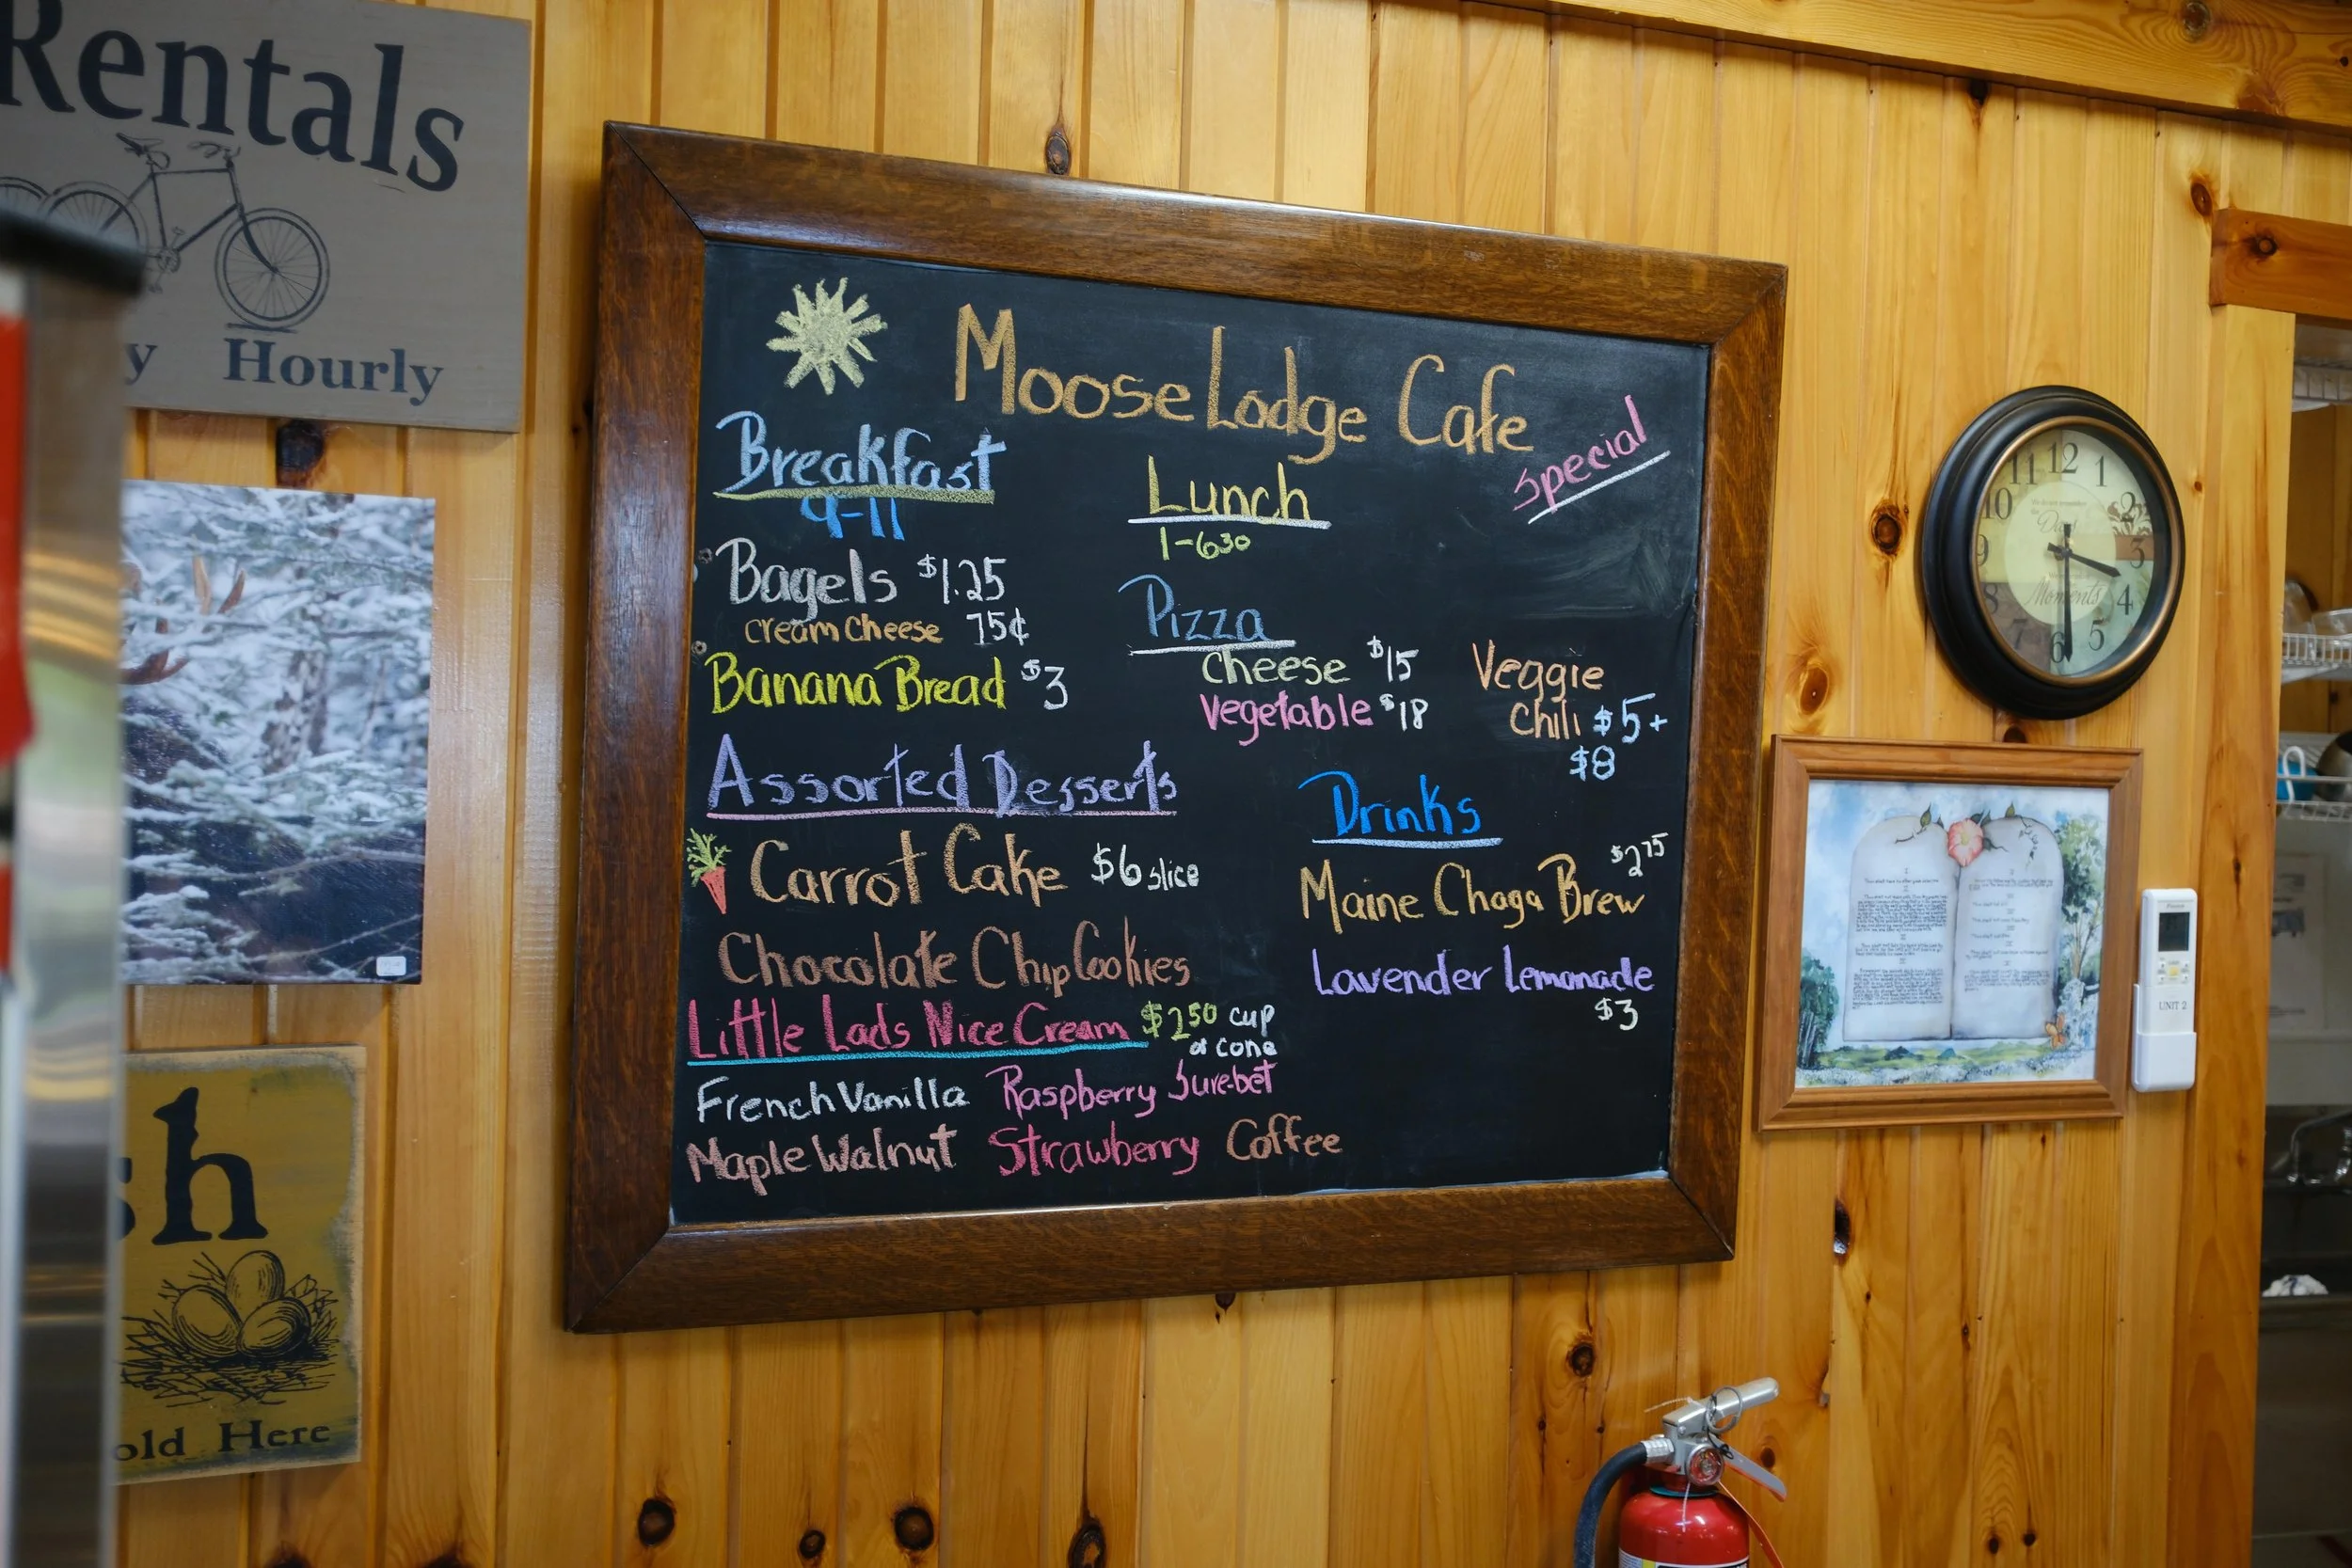 Rentals
Hourly
Moose Lodge Cafe
Breakfast
9-11
Bagels $1.25
Cream Cheese 75¢
Banana Bread $3
Lunch
1-630
Special
Pizza
Cheese $15
Vegetable $18
Veggie
Chili $5+
$8
Assorted Desserts
Carrot Cake $6 slice
Chocolate Chip Cookies
Little Lads Nice Cream $250 cup
or cone
French Vanilla Raspberry Sure-bet
Maple Walnut Strawberry Coffee
Drinks
$275
Maine Chaga Brew
Lavender Lemonade
$3
12
1
2
3
4
5
6
7
8
9
10
11
Moments
UNIT 2
sh
old Here